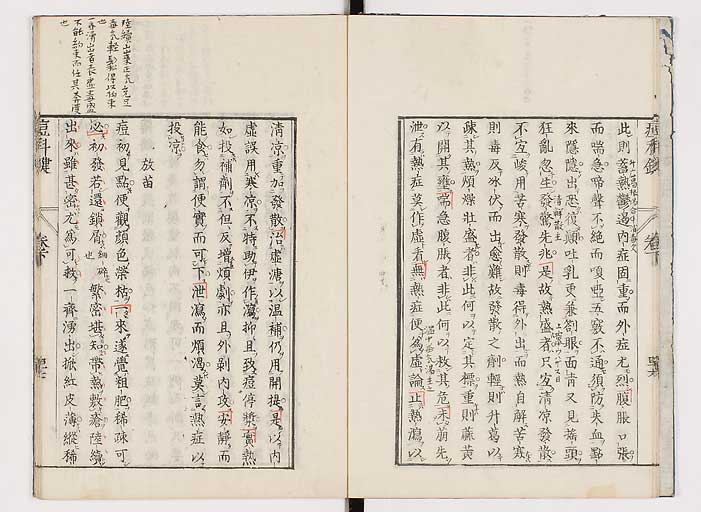 此則蓄熱鬱遏內症固重而外症尤烈腹脹口張
而喘急啼聲不絕而嗄啞五竅不通須防失血黔
來隱隱出恐後顚吐乳更兼劄眼面青又見搖頭
狂亂忽生發驚先兆是故熱盛者只宜清凉發散
不宜峻用苦寒發散則毒得外出而熱自解苦寒
則毒反冰伏而出愈難故發散之劑輕則升葛以
踈其熱煩燥壯盛者非此何以定其標重則蔴黃
以開其壅喘急腹脹者非此何以救其危未萠先
泄有熱症莫作虛看無熱症便爲虛論正熱瀉以
清凉重加發散治虛溏以溫補仍用開提是以內
虛誤用寒凉不特助伊作瀉抑且致痘停漿實熱
如投補劑不但反增煩劇亦且外剝內攻安靜而
能食勿謂便實而可下泄瀉而煩渴莫言熱症以
投凉
放苗
痘初見點便觀顏色榮枯一來遂覺粗肥稀疎可
必初發若還鎖屑繁密堪知帶熱敷瘡陸續
出來雖甚密尤爲可救一齊湧出掀紅皮薄縱稀
痘科鍵
卷下